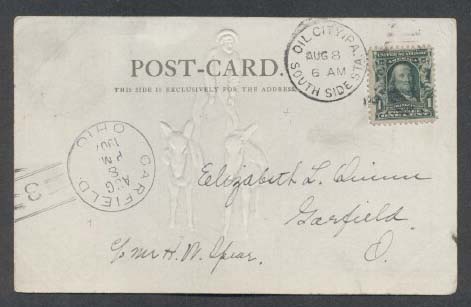 POST-CARD.
THIS SIDE IS EXCLUSIVELY FOR THE ADDRESS
OIL CITY, PA.
AUG 8
6 AM
SOUTH SIDE STA.
1
GARFIELD OHIO
AUG
8
PM
3
Elizabeth L. Quinn
Garfield
O.
c/o Mr H. W. Spear.